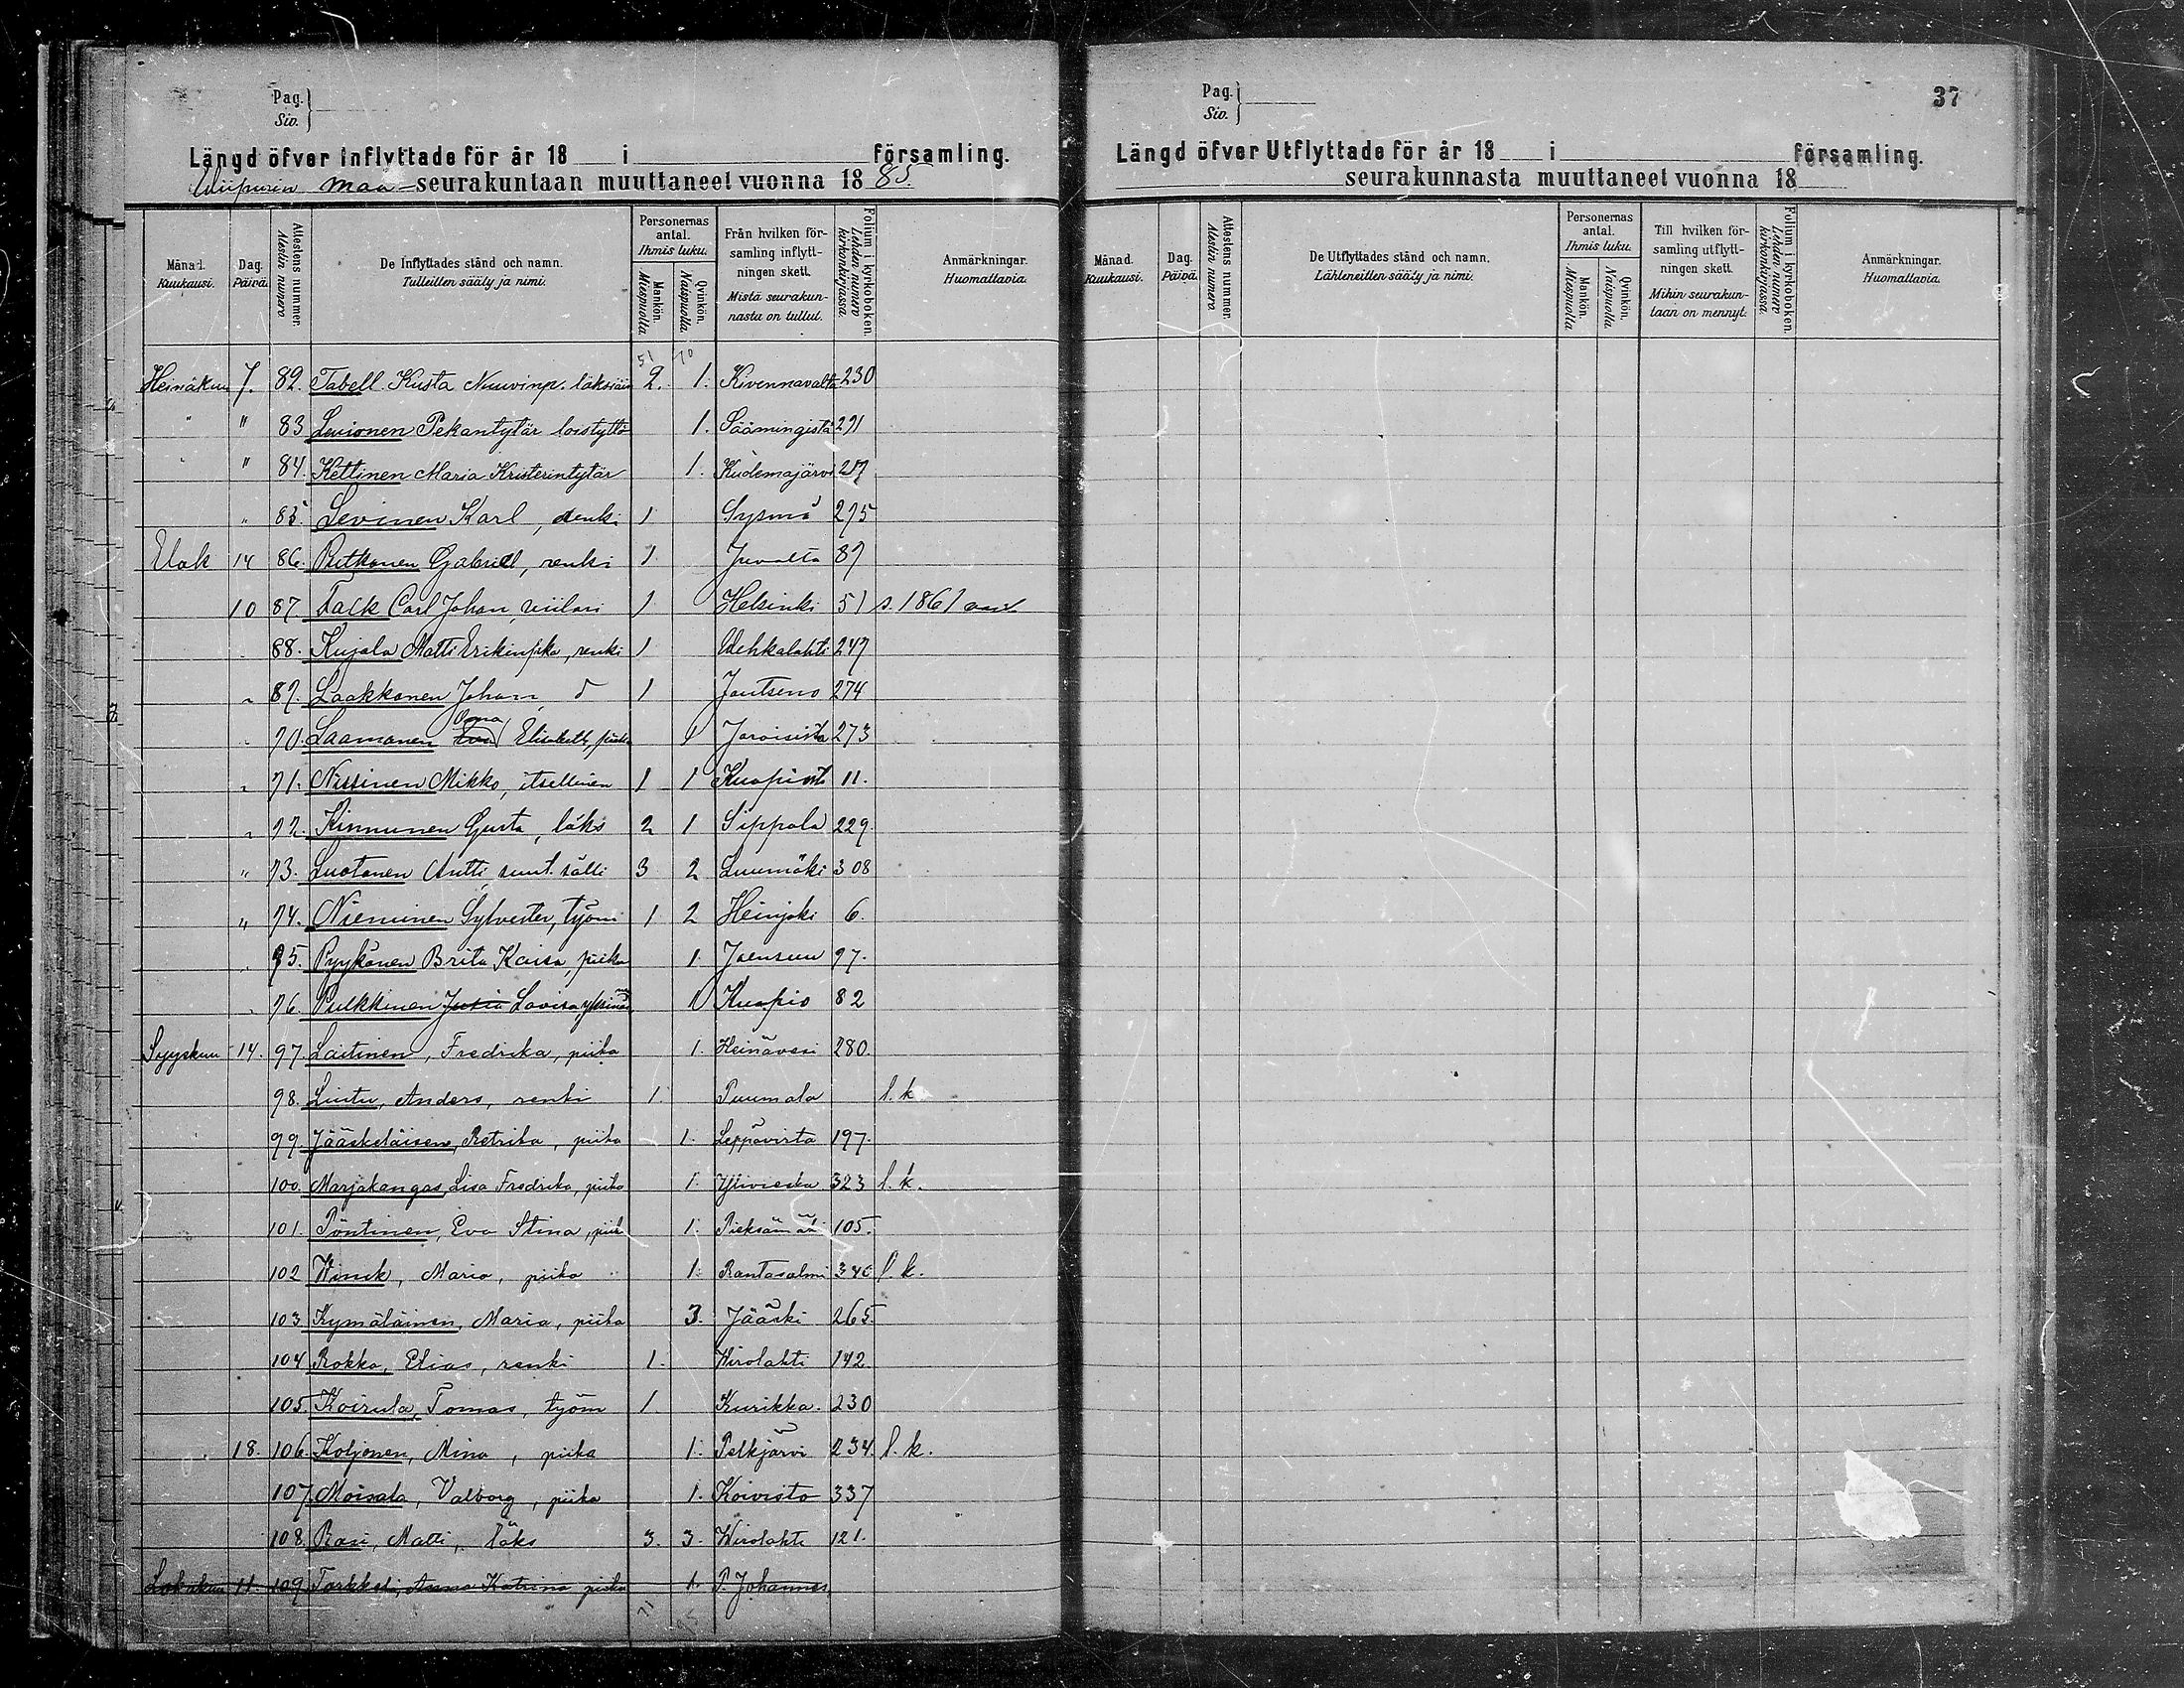 Pag.
Siv.
Längd öfver Inflyttade för år 18 i församling.
Wiipurin maa-seurakuntaan muuttaneet vuonna 1885.
Månad. Kuukausi.
Dag. Päivä.
Attestens nummer. Atestin numero
De Inflyttades stånd och namn. Tulleitten sääty ja nimi.
Personernas antal. Ihmis luku.
Mankön. Miespuolia
Qvinkön. Naispuolia
Från hvilken församling inflyttningen skett. Mistä seurakunnasta on tullut.
Folium i kyrkoboken. Lehden numero kirkonkirjassa.
Anmärkningar. Huomattavia.
51 70
Heinäkuu 7. 82. Tabell Kusta 2. 1. Kivennavalta 230
" " 83 Pekantytär loistyttö 1. Säämingistä 291
" " 84. Kettinen Maria Kristerintytär 1. Kudemajärvi 217
" 85 Levinen Karl, renki 1 Sysmä 275
Elok 14 86. Putkonen Gabriel, renki 1 Juvalta 89
10 87 Falk Carl Johan, viilari 1 Helsinki 51 s. 1861
88. Kujala Matti Erikinpka, renki 1 Vehkalahti 247
" 89. Laakkonen Johan, d 1 Joutseno 274
" 90. Laamanen Anna Elisabeth, piika 1 Joroisista 273
" 91. Nissinen Mikko, itsellinen 1 1 Kuopiosta 11.
" 92. Kinnunen Gusta, läks 2 1 Sippola 229.
" 93. Luotonen Antti suut. sälli 3 2 Luumäki 308
" 94. Nieminen Sylvester, työm 1 2 Heinjoki 6.
" 95. Pyykönen Brita Kaisa, piika 1 Joensuu 97.
" 96. Pulkkinen Lovisa 1 Kuopio 82
Syyskuu 14. 97. Laitinen, Fredrika, piika 1. Heinävesi 280.
98. Lintu, Anders, renki 1. Puumala l. k.
99. Jääskeläinen, Retrika, piika 1. Leppävirta 197.
100. Marjakangas, Lisa Fredrika, piika 1. Ylivieska 323 l. k.
101. Pöntinen, Eva Stina, piik 1. Pieksämäki 105.
102 Winik, Maria, piika 1. Rantasalmi 340 l. k.
103 Kymäläinen, Maria, piika 3. Jääski 265.
104 Rokka, Elias, renki 1. Wirolahti 142.
105. Koirula, Tomas, työm 1. Kurikka. 230
18. 106. Koljonen, Mina, piika 1. Pelkjärvi 234. l. k.
107. Moisala, Valborg, piika 1. Koivisto 337
108. Rasi, Matti, läks 3. 3. Wirolahti 121.
Lokakuu 11. 109. Tarkkoli, Anna Katrina piika 1. P. Johannes
71 95
Pag.
Siv.
37
Längd öfver Utflyttade för år 18 i församling.
seurakunnasta muuttaneet vuonna 18
Månad. Kuukausi.
Dag. Päivä.
Attestens nummer. Atestin numero
De Utflyttades stånd och namn. Lähteneitten sääty ja nimi.
Personernas antal. Ihmis luku.
Mankön. Miespuolia
Qvinkön. Naispuolia
Till hvilken församling utflyttningen skett. Mihin seurakuntaan on mennyt.
Folium i kyrkoboken. Lehden numero kirkonkirjassa.
Anmärkningar. Huomattavia.